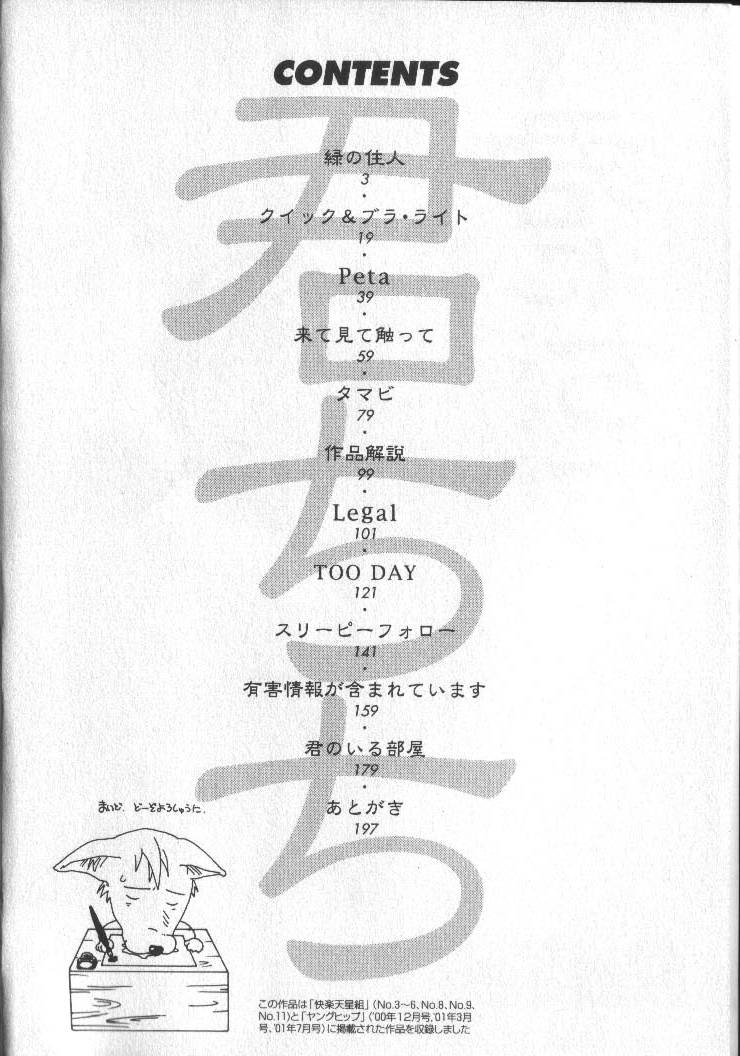 CONTENTS
君ちち
緑の住人
3
・
クイック&ブラ・ライト
19
・
Peta
39
・
来て見て触って
59
・
タマビ
79
・
作品解説
99
・
Legal
101
・
TOO DAY
121
・
スリーピーフォロー
141
・
有害情報が含まれています
159
・
君のいる部屋
179
・
あとがき
197
まいど、どーぞよろしゅうに.
この作品は「快楽天星組」(No.3〜6、No.8、No.9、
No.11)と「ヤングヒップ」('00年12月号、'01年3月
号、'01年7月号)に掲載された作品を収録しました